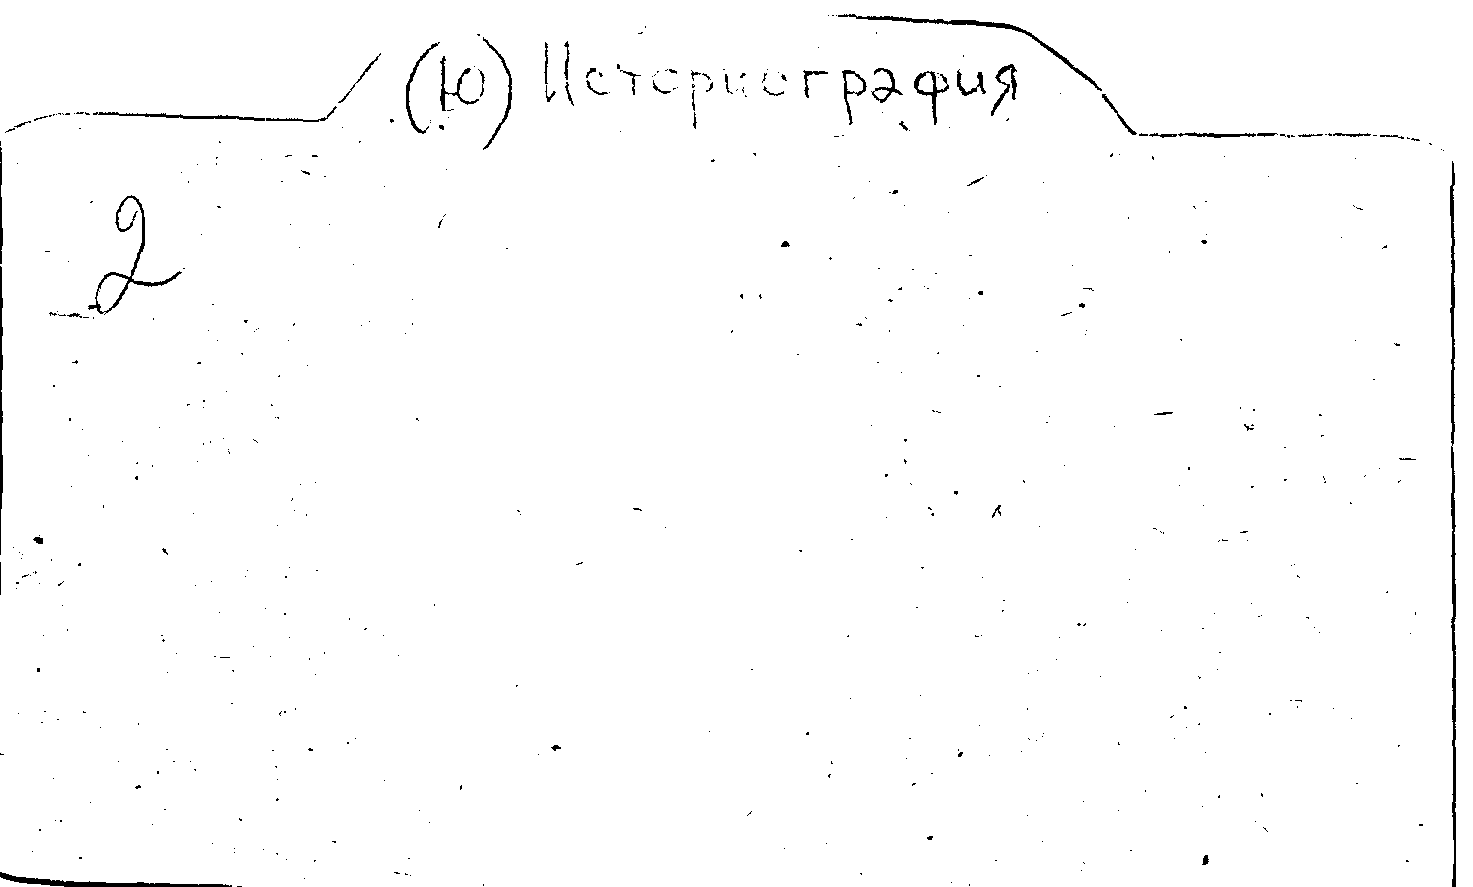 (Ю) Историография
2